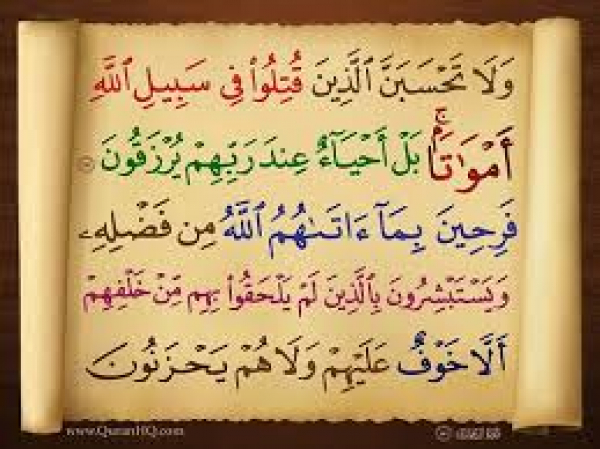 وَلَا تَحْسَبَنَّ ٱلَّذِينَ قُتِلُوا۟ فِى سَبِيلِ ٱللَّهِ
أَمْوَٰتًۢا ۚ بَلْ أَحْيَآءٌ عِندَ رَبِّهِمْ يُرْزَقُونَ
فَرِحِينَ بِمَآ ءَاتَىٰهُمُ ٱللَّهُ مِن فَضْلِهِۦ
وَيَسْتَبْشِرُونَ بِٱلَّذِينَ لَمْ يَلْحَقُوا۟ بِهِم مِّنْ خَلْفِهِمْ
أَلَّا خَوْفٌ عَلَيْهِمْ وَلَا هُمْ يَحْزَنُونَ
www.QuranHQ.com